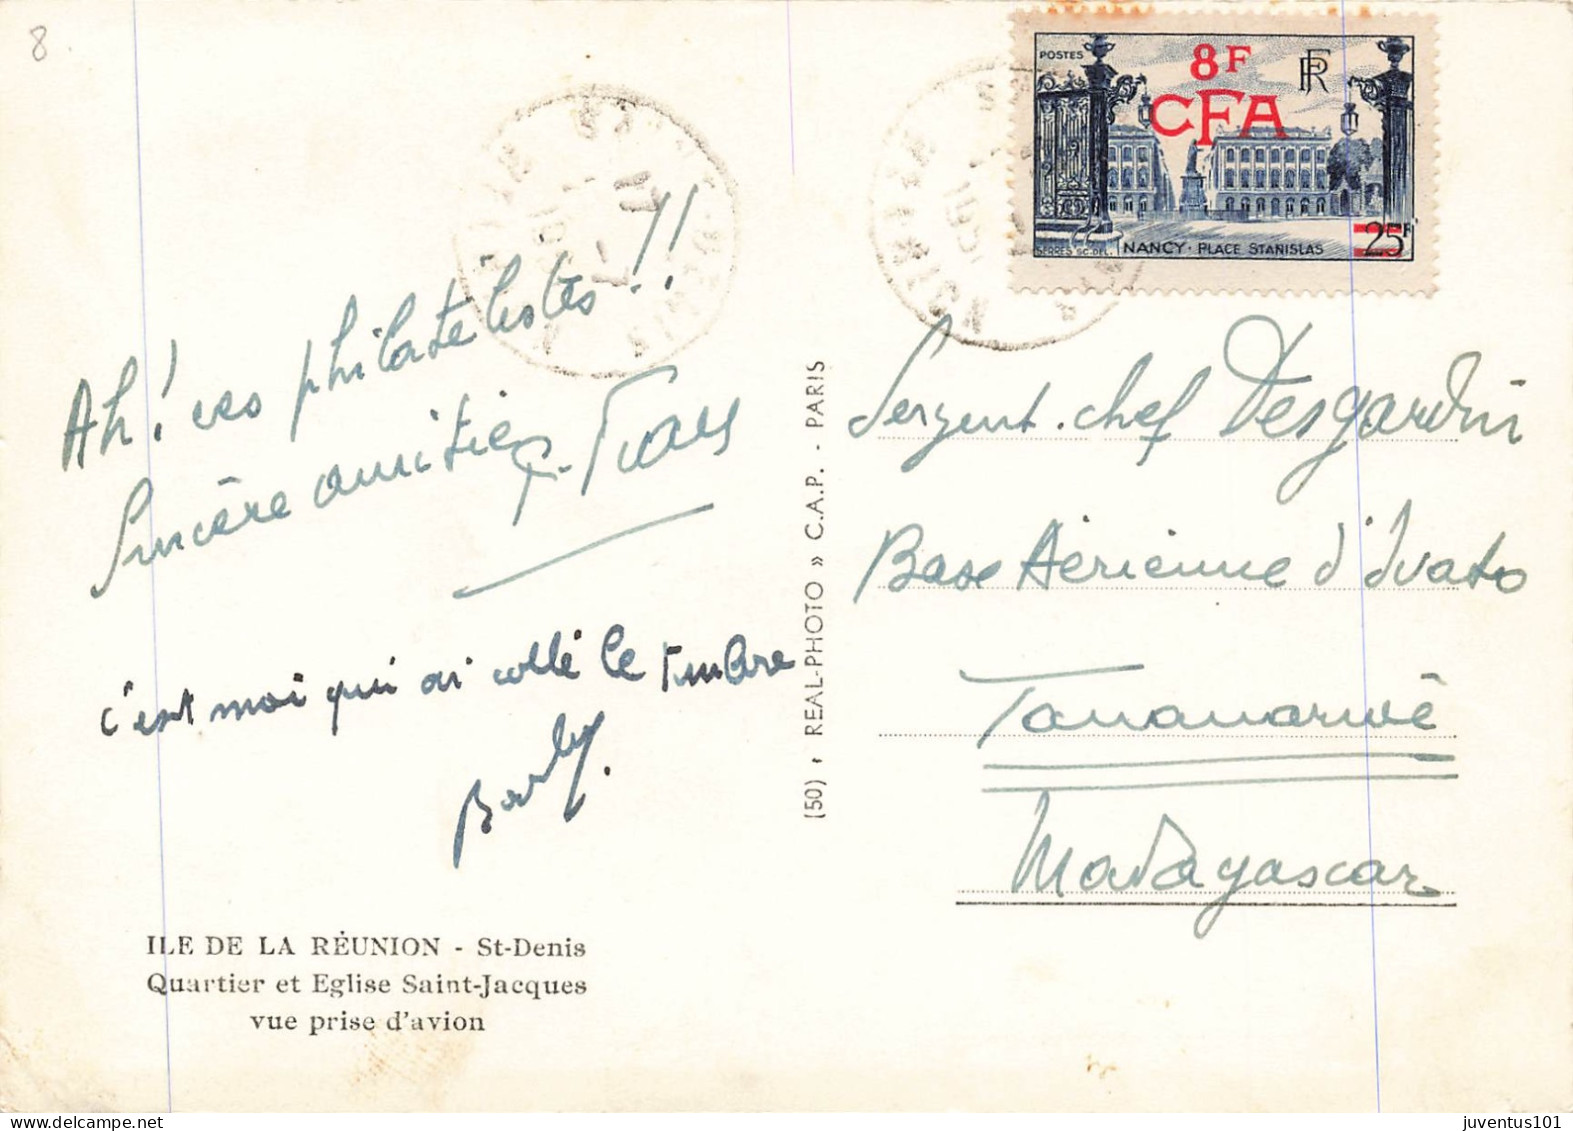 8
Ah! ces philatélistes!!
Sincère amitiés
c'est moi qui ai collé le timbre
ILE DE LA RÉUNION - St-Denis
Quartier et Eglise Saint-Jacques
vue prise d'avion
(50) , REAL-PHOTO » C.A.P. - PARIS
POSTES
8F
CFA
RF
SERRES SC. DEL.
NANCY · PLACE STANISLAS
25F
Sergent-chef Desgardin
Base Aérienne d'Ivato
Tananarive
Madagascar
juventus101